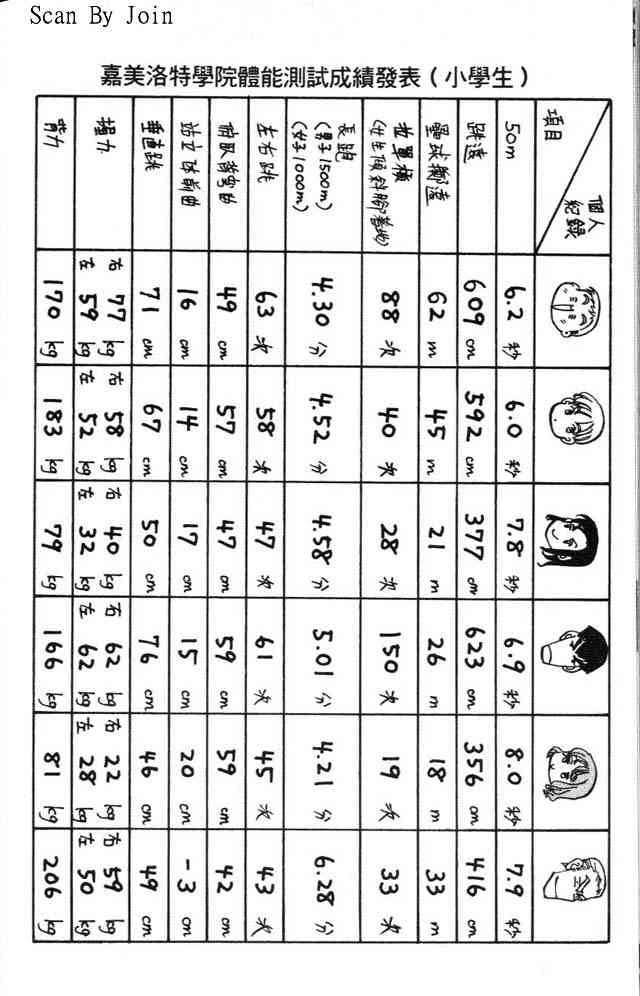 Scan By Join
嘉美洛特學院體能測試成績發表(小學生)
項目 個人紀錄
50m 6.2秒 6.0秒 7.8秒 6.9秒 8.0秒 7.9秒
跳遠 609cm 592cm 377cm 623cm 356cm 416cm
壘球擲遠 62m 45m 21m 26m 18m 33m
拉單槓(女生傾斜腳著地) 88次 40次 28次 150次 19次 33次
長跑(男子1500m)(女子1000m) 4.30分 4.52分 4.58分 5.01分 4.21分 6.28分
左右跳 63次 58次 47次 61次 45次 43次
俯臥後彎曲 49cm 57cm 47cm 59cm 59cm 42cm
站立體前曲 16cm 14cm 17cm 15cm 20cm -3cm
垂直跳 71cm 67cm 50cm 76cm 46cm 49cm
握力 右77kg 左59kg 右58kg 左52kg 右40kg 左32kg 右62kg 左62kg 右22kg 左28kg 右59kg 左50kg
背力 170kg 183kg 79kg 166kg 81kg 206kg